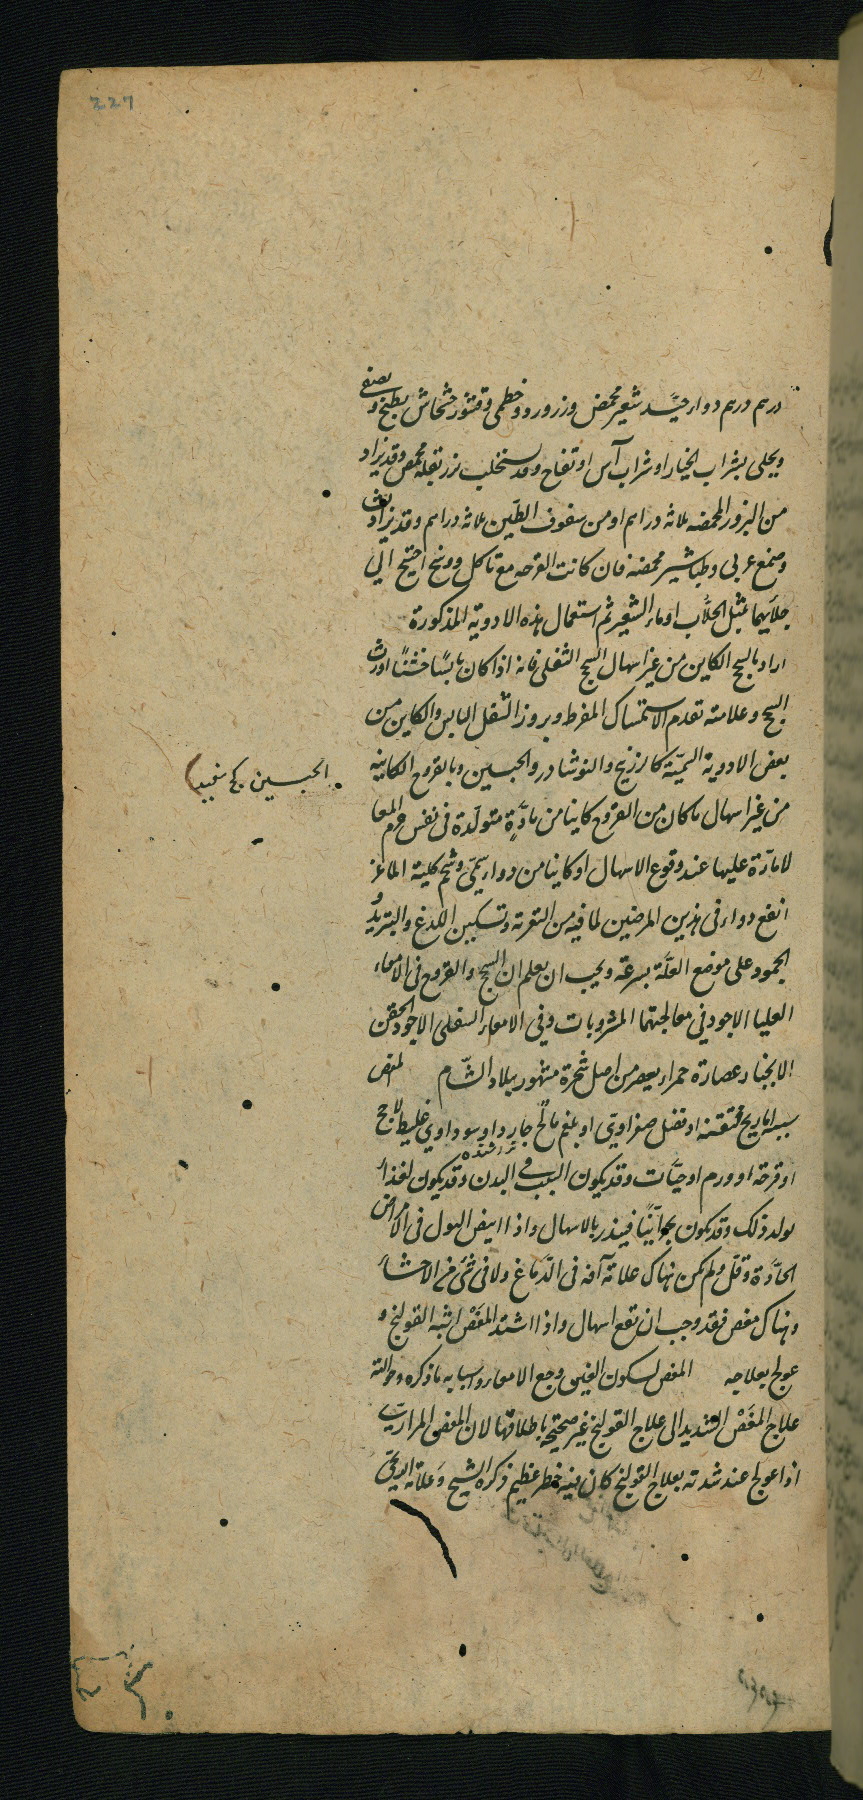 227
درهم درهم دواء جيّد شعير محمض وزرورد وخطمى وقشور خشخاش يطبخ ويصفى
ويحلى بشراب الخيار او شراب آس او تفاح وقد يستحلب بزر بقلة محمص وقد يزاد
من البزور المحمصه ثلاثه دراهم او من سفوف الطين ثلاثه دراهم وقد يزاد
وصمغ عربى وطباشير محمصه فان كانت القرحه مع تاكل ووسخ احتيج الى
جلائيهما بمثل الجلّاب او ماء الشعير ثم استعمال هذه الادوية المذكورة
اراد بالسحج الكاين من غير اسهال السحج الثفلى فانه اذا كان يابسًا خشنًا اورث
السحج وعلامته تقدم الاستمساك المفرط وبروز الثفل اليابس والكاين من
بعض الادوية السميّة كالزرنيخ والنوشادر والجبسين وبالقروح الكاينه
من غير اسهال ما كان من القروح كاينا من مادّةٍ متولّدة فى نفس جرم المعا
لا مارّة عليها عند وقوع الاسهال او كاينا من دواء سمّى وشحم كلية الماعز
انفع دواء فى هذين المرضين لما فيه من التغرية وتسكين اللدغ والتبريد و
الجمود على موضع العلّة بسرعة ويجب ان يعلم ان السحج والقروح فى الامعاء
العليا الاجود فى معالجتهما المشروبات وفى الامعاء السفلى الاجود الحقن
الانجبار عصارة حمراء يعصر من اصل شجرة مشهور ببلاد الشّام المغص
سببه اما ريح محتقنه او فضل صفراوى او بلغم مالح جارد او سوداوى غليظ لاحج
او قرحة او ورم او حيّات وقد يكون السبب فى البدن وقد يكون لغذاء
يولد ذلك وقد يكون بحرانيًا فينذر بالاسهال واذا ابيض البول فى الامراض
الحادّة وقلّ ولم يكن هناك علامة آفة فى الدّماغ ولا فى شئ من الاحشاء
وهناك مغص فقد وجب ان يقع اسهال واذا اشتد المغَصْ اشبه القولنج و
عولج بعلاجه المغص بسكون الغين وجع الامعاء واسبابه ما ذكره وحوالته
علاج المغَصْ الشديد الى علاج القولنج غير صحيحة باطلاقها لان المغص المرارىّ
اذا عولج عند شدته بعلاج القولنج كان فيه خطر عظيم ذكره الشيخ وعلامة الريحىّ
الجبسين كچ سفيد